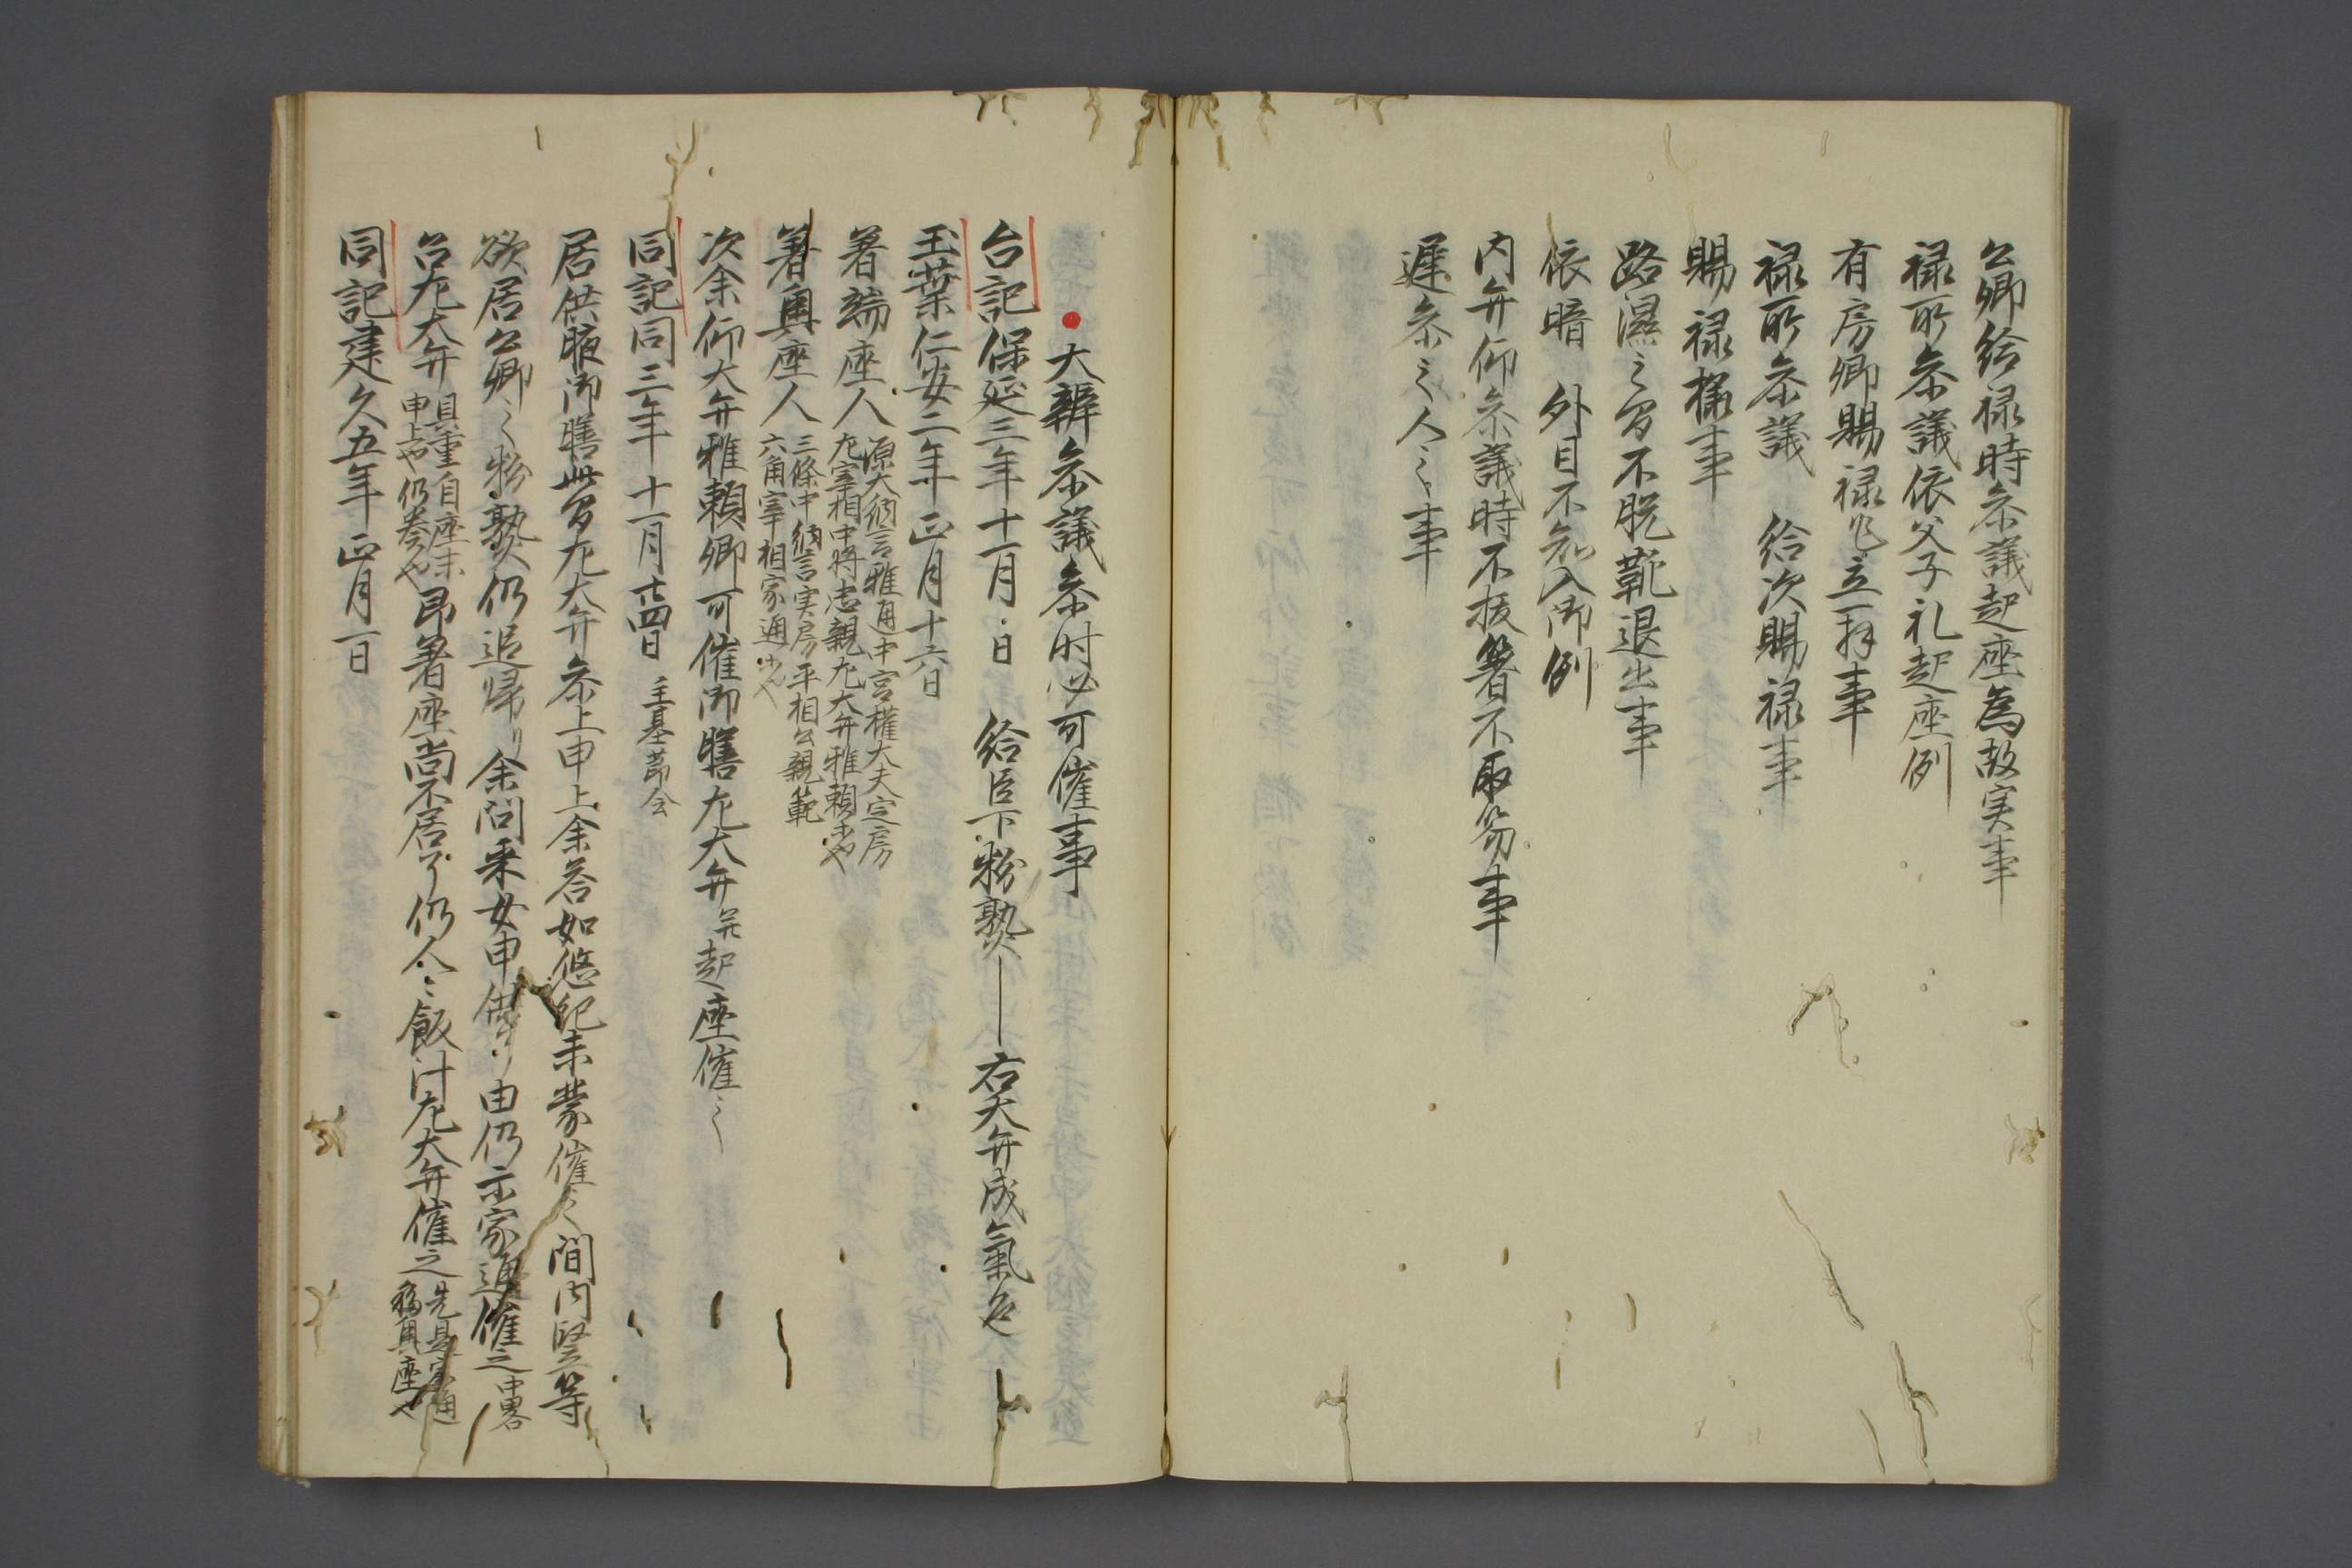 公卿給禄時参議起座為故実事
禄所参議依父子礼起座例
有房卿賜禄乍立一拝事
禄所参議　給次賜禄事
賜禄様事
路濕之間不脱靴退出事
依暗　外目不知入御例
内弁仰参議時不抜箸不取笏事
遅参之人之事
大辨参議参时必可催事
台記保延三年十一月日　給臣下粉熟—右大弁成氣色
玉葉仁安二年正月十六日
着端座人
源大納言雅通中宮權大夫定房
左宰相中将忠親左大弁雅頼等也
着奥座人
三條中納言実房平相公親範
六角宰相家通等也
次余仰大弁雅頼卿可催御膳左大弁起座催之
同記同三年十一月廿四日　主基節会
居供腋御膳此間左大弁参上申上余答如悠紀未蒙催之間内竪等
欲居公卿之粉熟仍追帰了余問采女申供了由仍示家通催之中略
召左大弁
具重自座末
申上也仍巻也
昂着座尚不居了仍人々飯汁左大弁催之
先是家通
移奥座也
同記建久五年正月一日